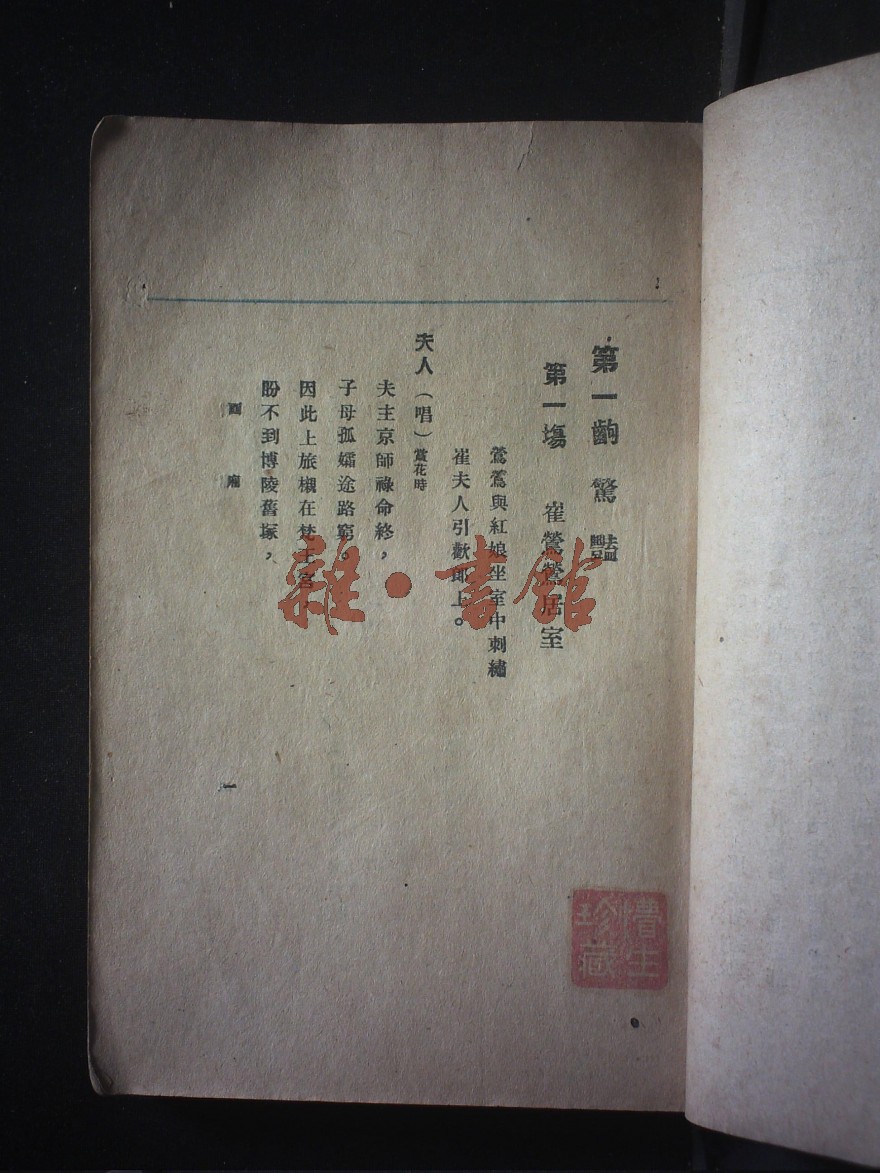 第一齣 驚豔
第一場 崔鶯鶯居室
鶯鶯與紅娘坐室中刺繡
崔夫人引歡郎上。
夫人（唱）賞花時
夫主京師祿命終，
子母孤孀途路窮。
因此上旅櫬在梵王宮，
盼不到博陵舊塚，
西廂
一
雜·書館
珍藏